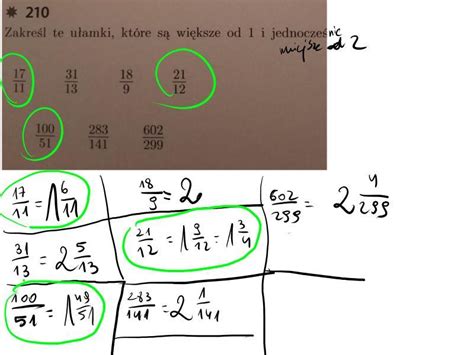 ✷ 210
Zakreśl te ułamki, które są większe od 1 i jednocześnie
mniejsze od 2
17/11 31/13 18/9 21/12
100/51 283/141 602/299
17/11 = 1 6/11
18/9 = 2
602/299 = 2 4/299
31/13 = 2 5/13
21/12 = 1 9/12 = 1 3/4
100/51 = 1 49/51
283/141 = 2 1/141